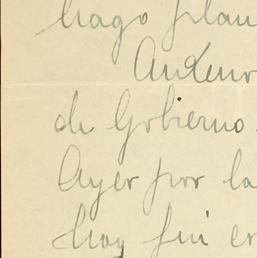 hago plan
de Gobierno.
Ayer por la
Hoy fui en